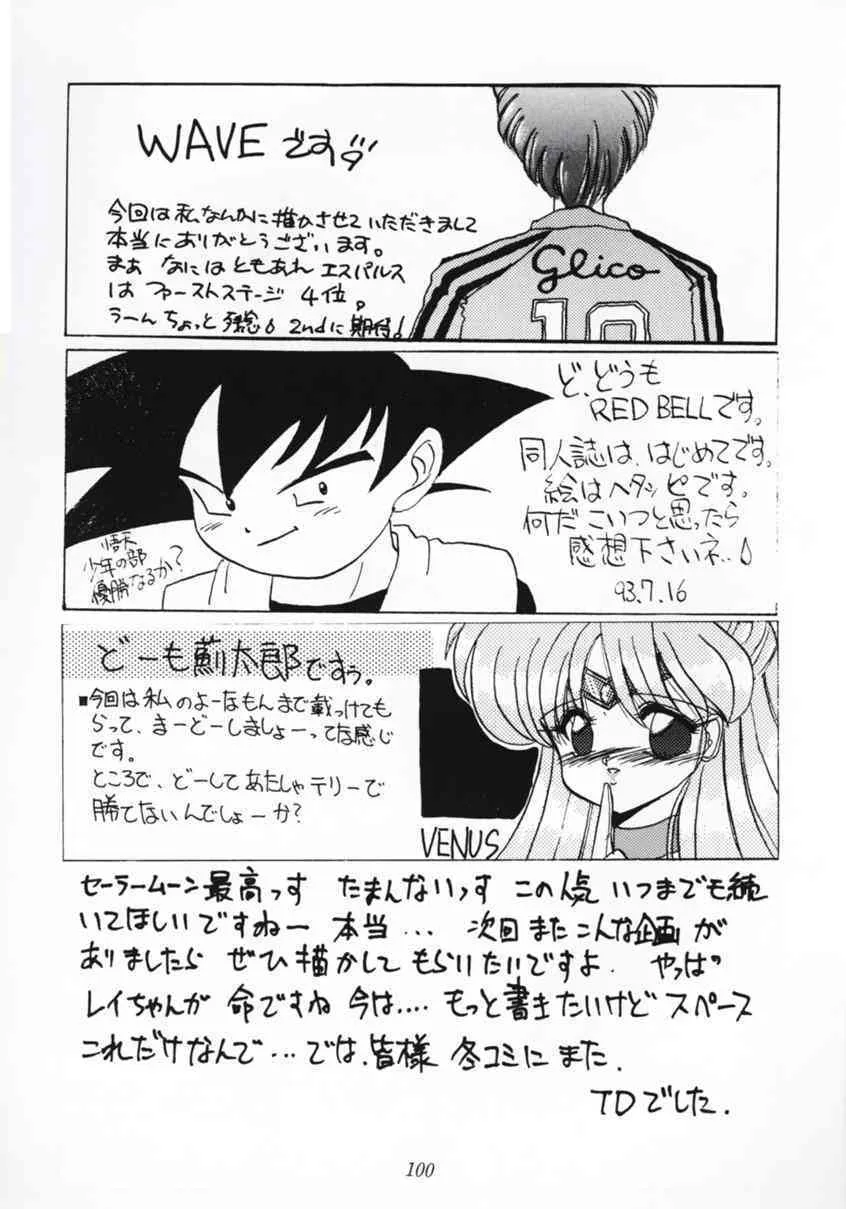 WAVEです
今回は私なんかに描かさせていただきまして
本当にありがとうございます。
まぁ なにはともあれ エスパルス
は ファーストステージ 4位。
うーん ちょっと 残念 2ndに期待!
Glico
10
ど、どうも
RED BELLです。
同人誌は、はじめてです。
絵はヘタッピです。
何だこいつと思ったら
感想下さいネ…
93.7.16
悟天
少年の部
優勝なるか?
どーも薊太郎ですぅ。
■今回は私のよーなもんまで載っけても
らって、まーどーしましょーってな感じ
です。
ところで、どーしてあたしゃテリーで
勝てないんでしょーか?
VENUS
セーラームーン最高っす たまんないっす この人気 いつまでも続
いてほしいですねー 本当… 次回またこんな企画が
ありましたら ぜひ描かしてもらいたいですよ. やっぱ
レイちゃんが 命ですね 今は…. もっと書きたいけど スペース
これだけなんで…では、皆様 冬コミにまた.
TDでした.
100